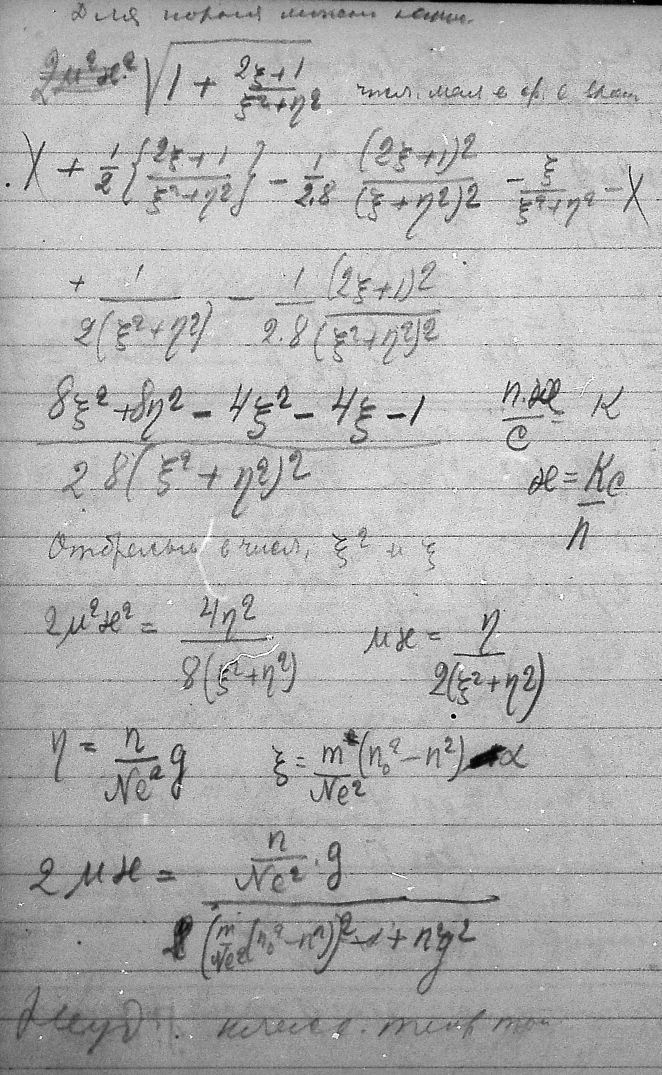 Для корня можем напис.
2μ²ϰ² √1 + (2ξ+1)/(ξ²+η²) числ. мал в ср. с
X + 1/2 {(2ξ+1)/(ξ²+η²)} − 1/2.8 (2ξ+1)²/(ξ+η²)² − ξ/(ξ²+η²) − X
+ 1/2(ξ²+η²) − 1/2.8 (2ξ+1)²/(ξ²+η²)²
(8ξ²+8η² − 4ξ² − 4ξ − 1)/2.8(ξ²+η²)² n.ϰ/c = K
ϰ = Kc/n
Отбрасыв в числ. ξ² и ξ
2μ²ϰ² = 4η²/8(ξ²+η²) μϰ = η/2(ξ²+η²)
η = n/Ne² g ξ = m/Ne² (n₀² − n²) − α
2μϰ = (n/Ne² · g)/((m/Ne² (n₀² − n²))² − α + n²g²
класс. теор